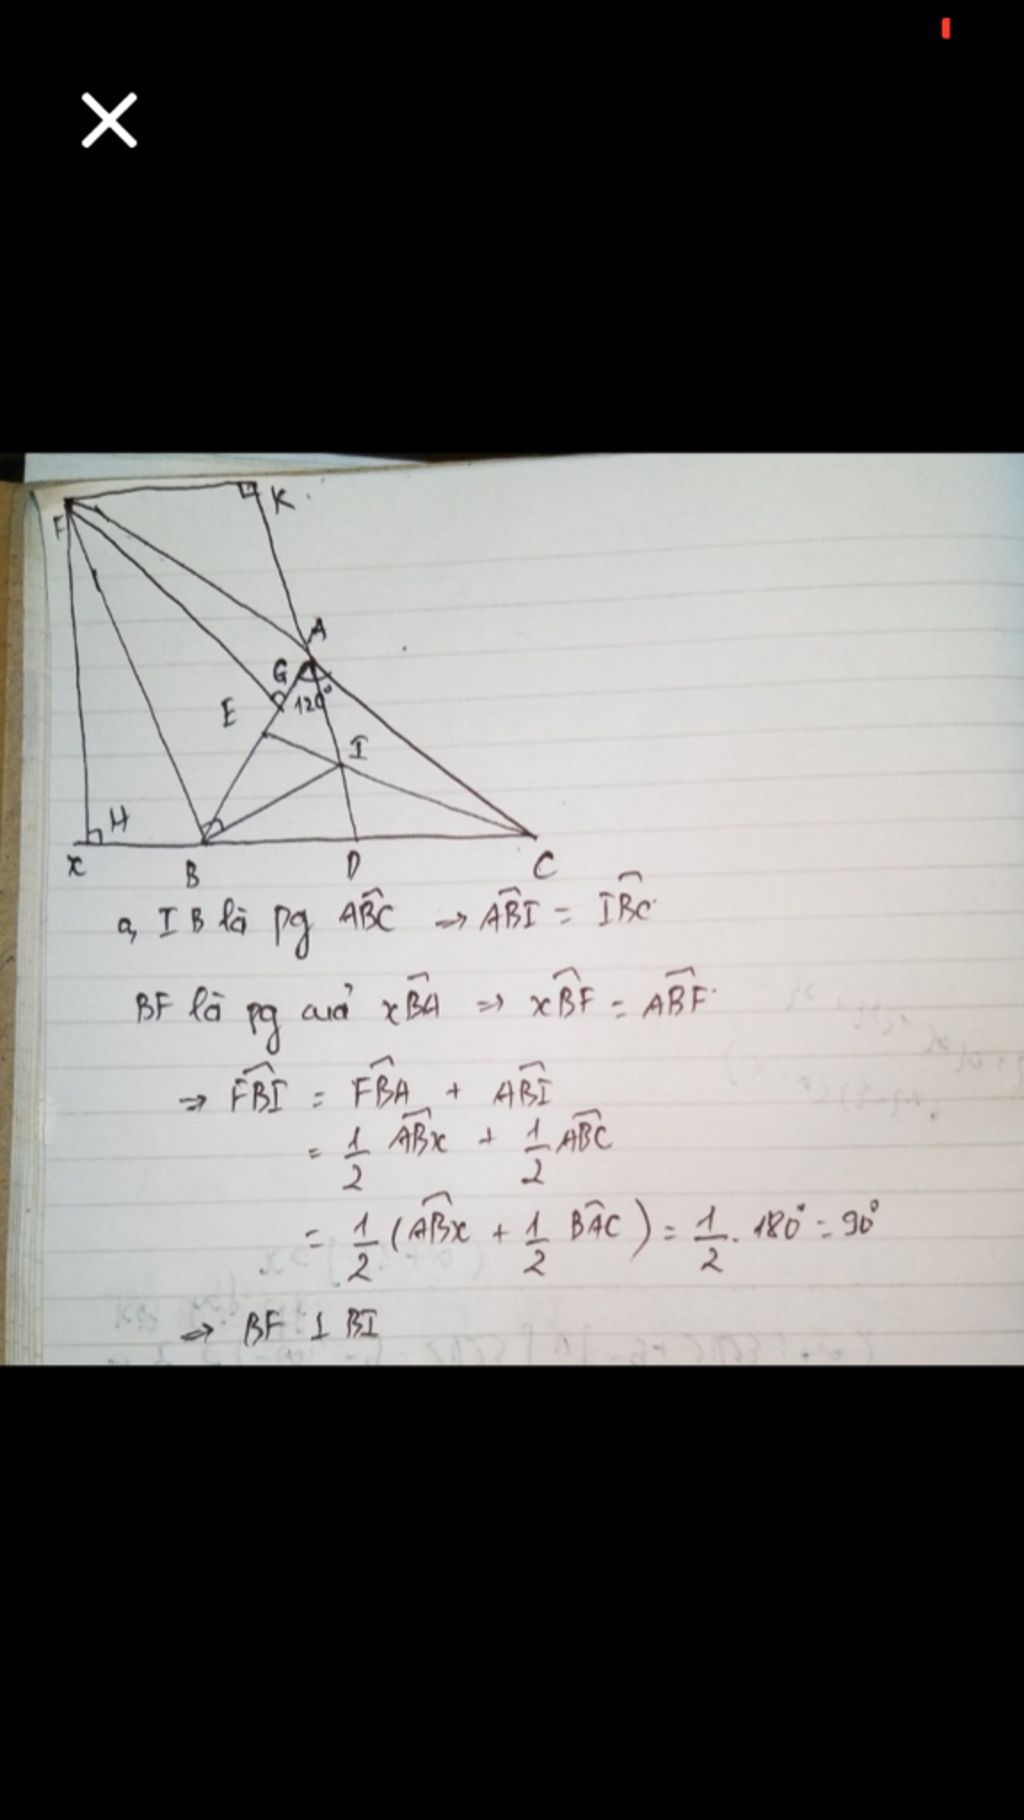 F
K
A
G
120°
E
I
H
x
B
D
C
a, IB là pg ABC ⇒ ABI = IBC
BF là pg của xBA ⇒ xBF = ABF
⇒ FBI = FBA + ABI
= 1/2 ABx + 1/2 ABC
= 1/2 (ABx + 1/2 BAC) = 1/2 . 180° = 90°
⇒ BF ⊥ BI